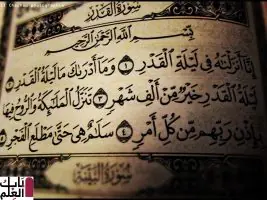 سُورَةُ القَدْرِ
بِسْمِ اللَّهِ الرَّحْمَٰنِ الرَّحِيمِ
إِنَّا أَنزَلْنَاهُ فِي لَيْلَةِ الْقَدْرِ ١ وَمَا أَدْرَاكَ مَا لَيْلَةُ الْقَدْرِ ٢
لَيْلَةُ الْقَدْرِ خَيْرٌ مِّنْ أَلْفِ شَهْرٍ ٣ تَنَزَّلُ الْمَلَائِكَةُ وَالرُّوحُ فِيهَا
بِإِذْنِ رَبِّهِم مِّن كُلِّ أَمْرٍ ٤ سَلَامٌ هِيَ حَتَّىٰ مَطْلَعِ الْفَجْرِ
سُورَةُ البَيِّنَةِ
بابك
العلم